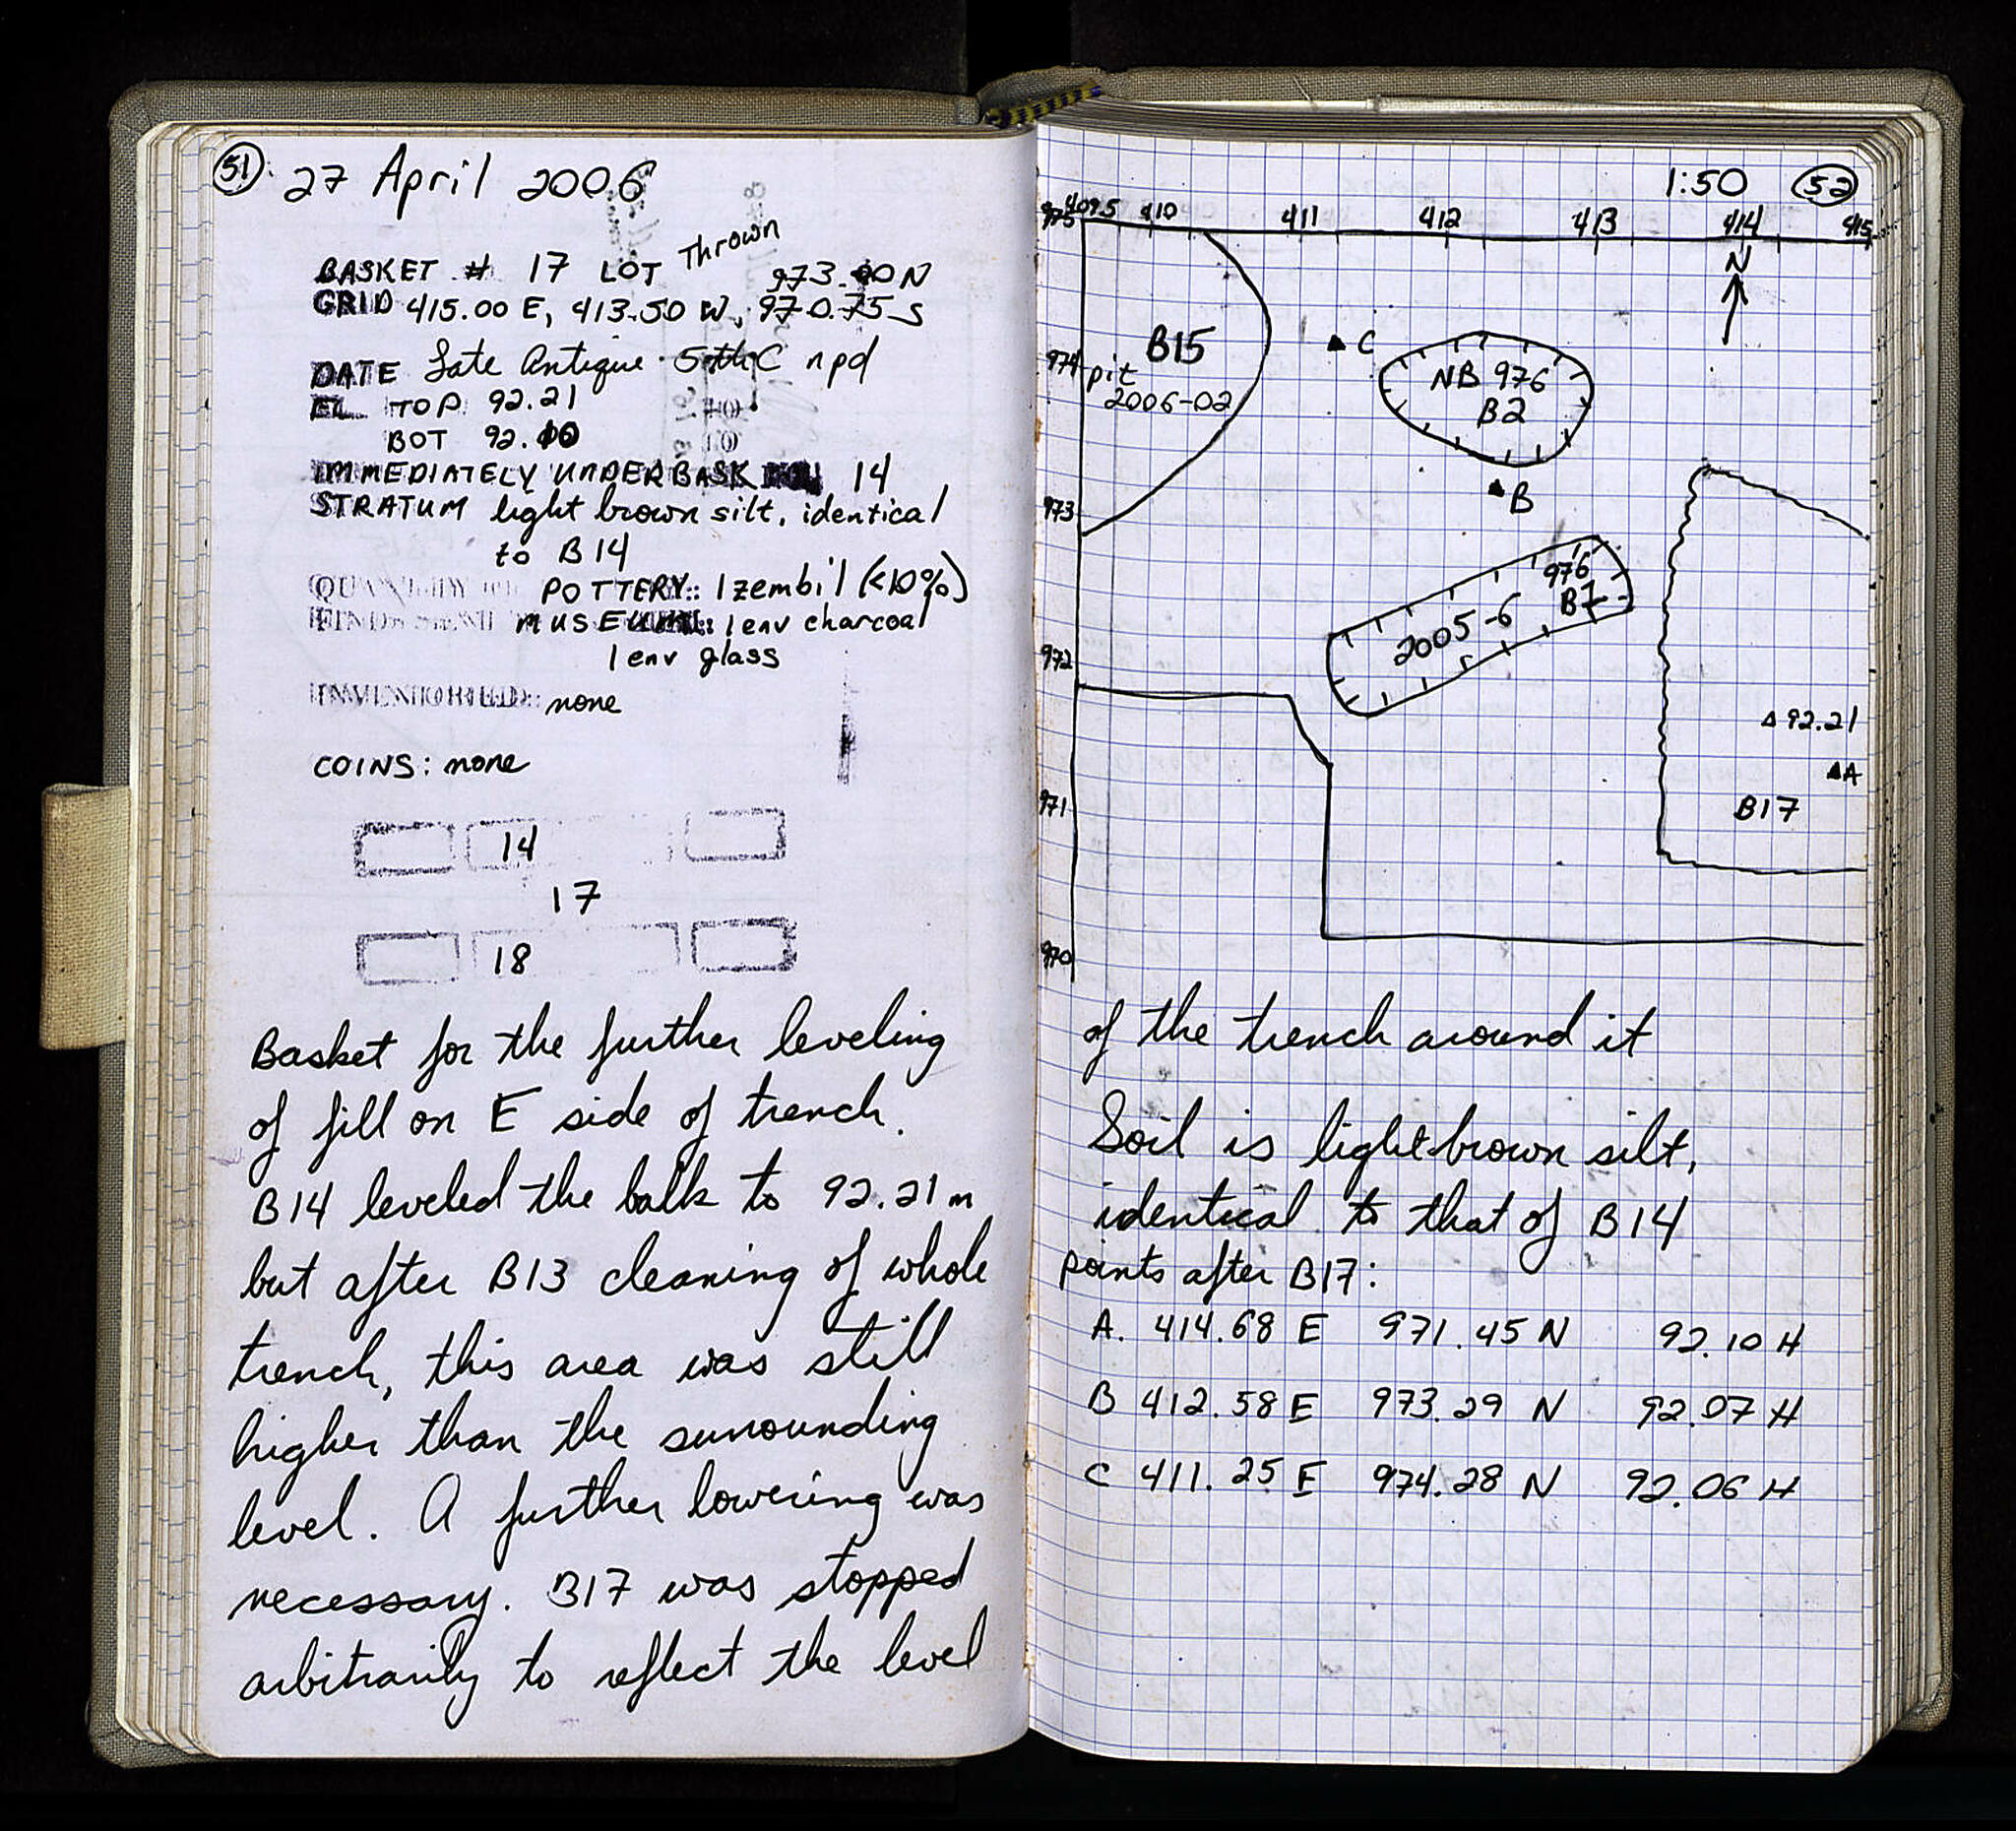 51
27 April 2006
BASKET # 17 LOT Thrown
973.00 N
GRID 415.00 E, 413.50 W, 970.75 S
DATE Late Antique 5th C npd
EL TOP 92.21
BOT 92.10
IMMEDIATELY UNDER BASK 14
STRATUM light brown silt, identical
to B14
POTTERY: 1 zembil (<10%)
MUSEUM: 1 env charcoal
1 env glass
INVENTORIED: none
COINS: none
14
17
18
Basket for the further leveling
of fill on E side of trench.
B14 leveled the balk to 92.21 m
but after B13 cleaning of whole
trench, this area was still
higher than the surrounding
level. A further lowering was
necessary. B17 was stopped
arbitrarily to reflect the level
1:50 52
975 409.5 410 411 412 413 414 415
N
B15
C
974
pit
2006-02
NB 976
B2
973
B
976
B7
2005-6
972
92.21
A
971
B17
970
of the trench around it
Soil is light brown silt,
identical to that of B14
points after B17:
A. 414.68 E 971.45 N 92.10 H
B 412.58 E 973.29 N 92.07 H
C 411.25 E 974.28 N 92.06 H